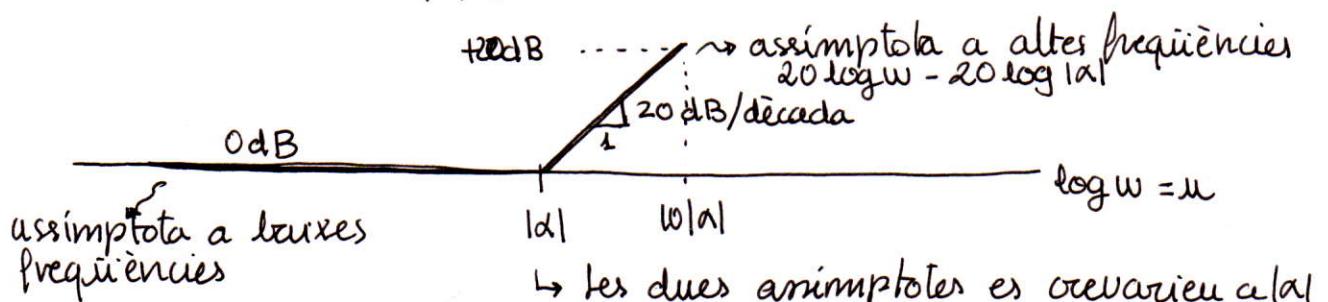 +20dB
assímptota a altes freqüències
20 log w - 20 log |α|
20 dB/dècada
1
0dB
log w = u
assímptota a baixes
freqüències
|α|
10|α|
↳ Les dues assímptotes es creuarien a |α|